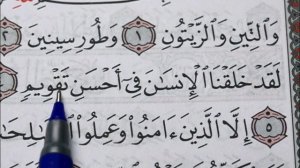 وَالتِّينِ وَالزَّيْتُونِ ١ وَطُورِ سِينِينَ ٢
لَقَدْ خَلَقْنَا الْإِنسَٰنَ فِي أَحْسَنِ تَقْوِيمٍ
٥ إِلَّا الَّذِينَ ءَامَنُوا وَعَمِلُوا